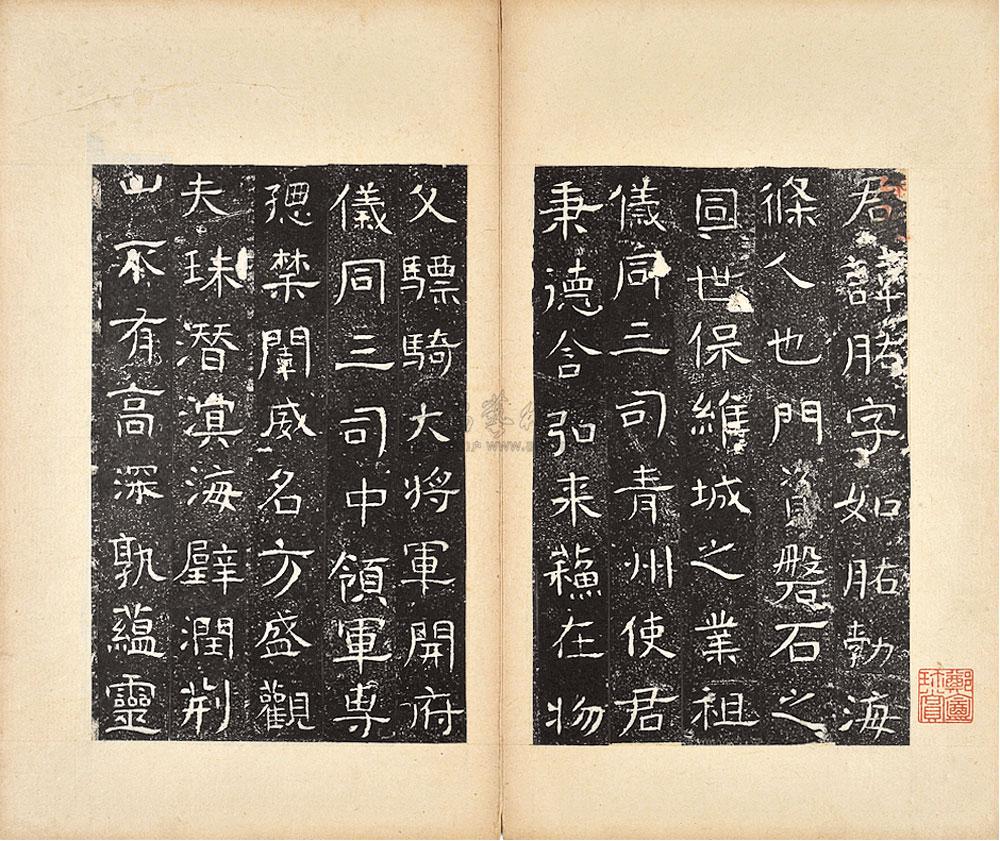 君諱肱字如肱勃海
條人也門資磐石之
固世保維城之業祖
儀同三司青州使君
秉德含弘来蘓在物
父驃騎大将軍開府
儀同三司中領軍専
揔禁闈威名方盛觀
夫珠潛溟海壁潤荆
山不有高深孰蘊靈